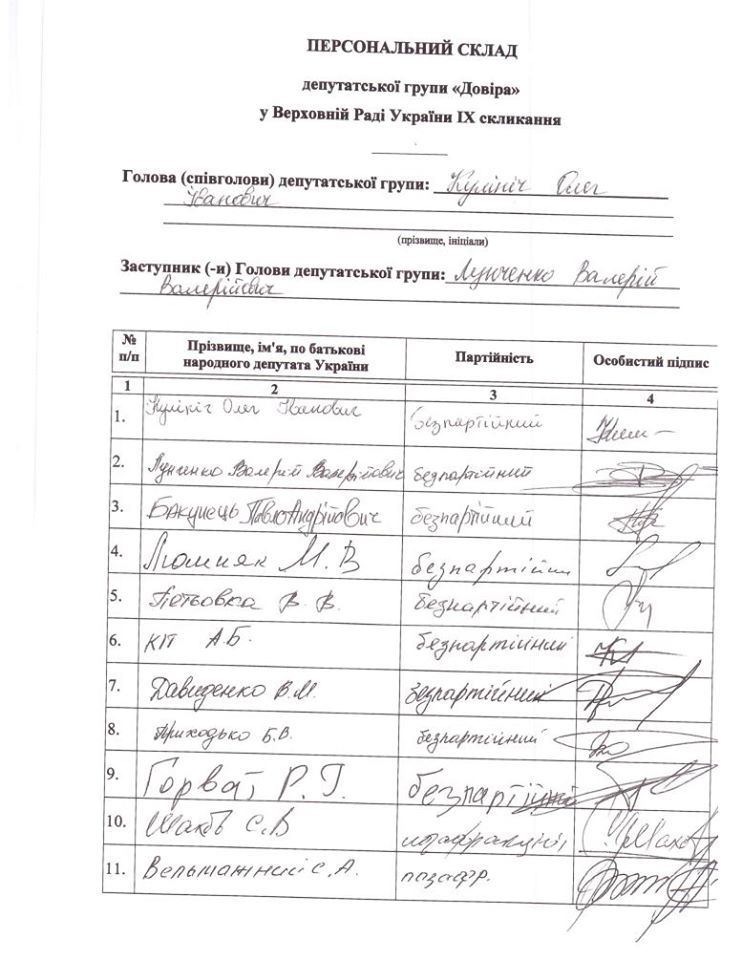 ПЕРСОНАЛЬНИЙ СКЛАД
депутатської групи «Довіра»
у Верховній Раді України ІХ скликання
Голова (співголови) депутатської групи: Кулініч Олег
Іванович
(прізвище, ініціали)
Заступник (-и) Голови депутатської групи: Лунченко Валерій
Валерійович
№ п/п Прізвище, ім'я, по батькові народного депутата України Партійність Особистий підпис
1 2 3 4
1. Кулініч Олег Іванович безпартійний
2. Лунченко Валерій Валерійович безпартійний
3. Бакунець Павло Андрійович безпартійний
4. Люшняк М. В безпартійний
5. Петьовка В. В. безпартійний
6. Кіт А.Б. безпартійний
7. Давиденко В.М. безпартійний
8. Приходько Б.В. безпартійний
9. Горват Р. І. безпартійний
10. Шахов С.В позафракції
11. Вельможний С.А. позафр.